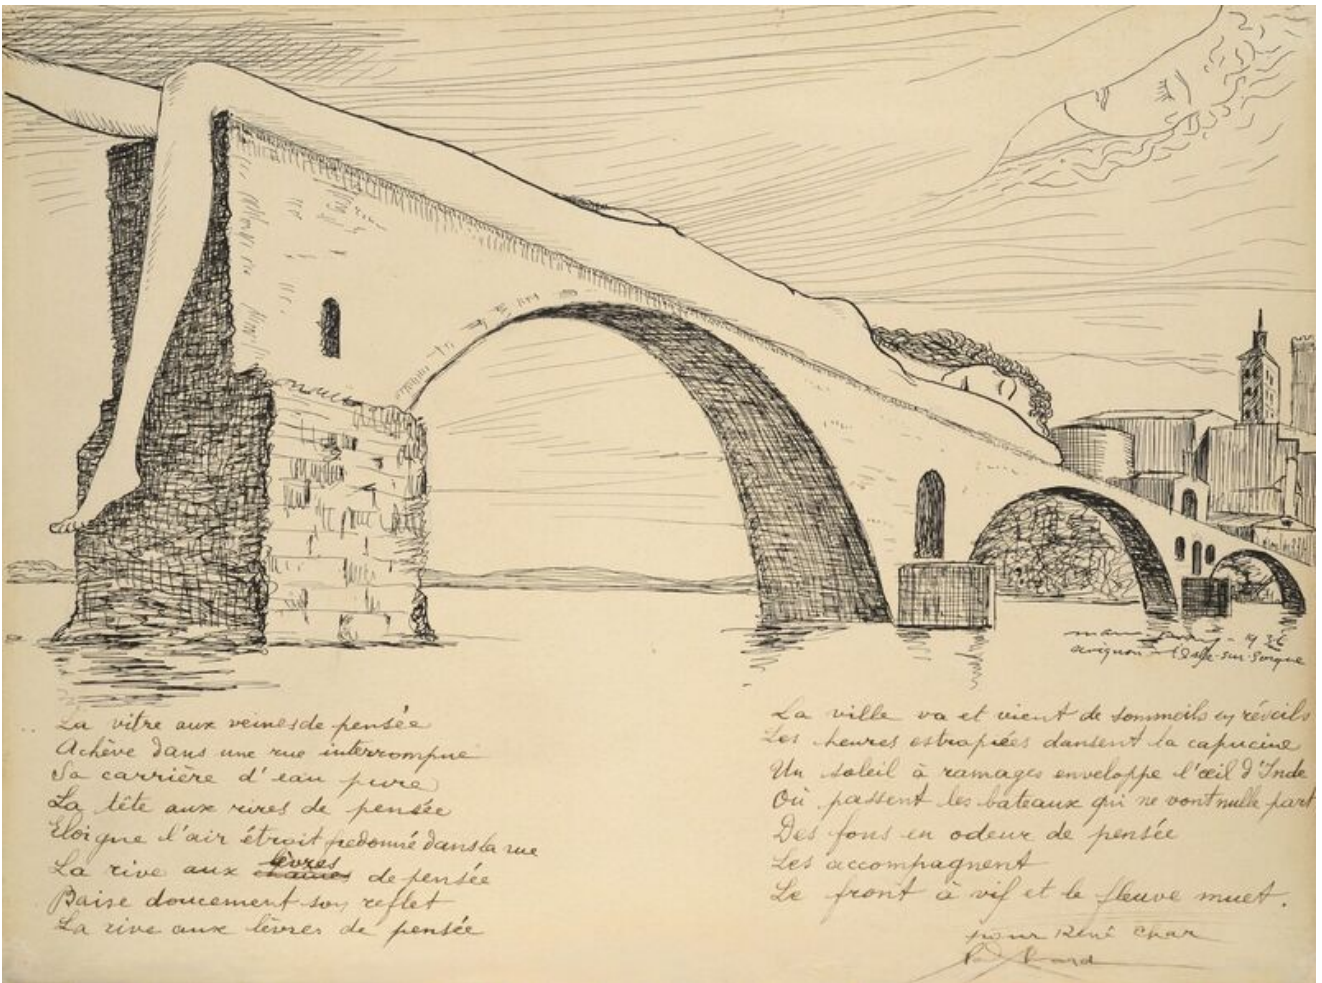 man Ray - 1936
avignon - l'Isle-sur-Sorgue
La vitre aux veines de pensée
Achève dans une rue interrompue
Sa carrière d'eau pure
La tête aux rires de pensée
Eloigne l'air étroit fredonné dans la rue
La rive aux lèvres de pensée
Baise doucement son reflet
La rive aux lèvres de pensée
La ville va et vient de sommeils en réveils
Les heures estropiées dansent la capucine
Un soleil à ramages enveloppe l'œil d'Inde
Où passent les bateaux qui ne vont nulle part
Des fous en odeur de pensée
Les accompagnent
Le front à vif et le fleuve muet.
pour René Char
Paul Eluard